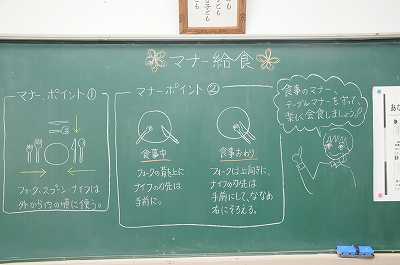 マナー給食
マナーポイント①
フォーク、スプーン、ナイフは
外から内の順に使う。
マナーポイント②
食事中
フォークの背を上に
ナイフの刃先は
手前に。
食事おわり
フォークは上向きに、
ナイフの刃先は
手前にして、ななめ
右にそろえる。
食事のマナー、
テーブルマナーを守って、
楽しく会食しましょう♪